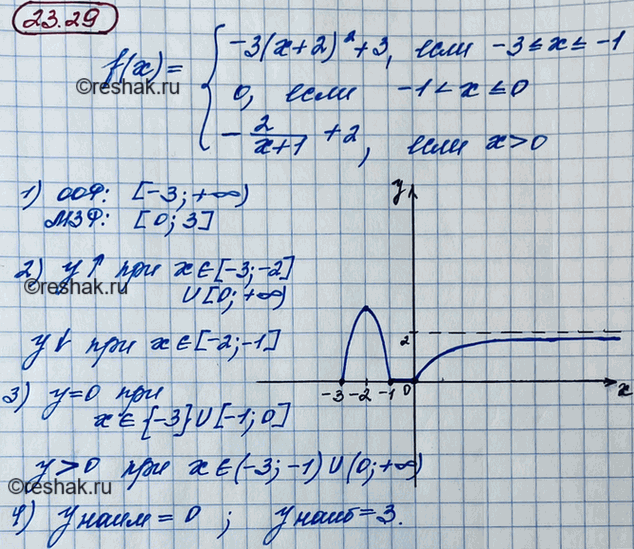 23.29
-3(x+2)²+3, если -3≤x≤-1
f(x) = { 0, если -1<x≤0
-2/(x+1) +2, если x>0
©reshak.ru
©reshak.ru
1) ООФ: [-3; +∞)
МЗФ: [0; 3]
2) y↑ при x∈[-3;-2]
∪[0; +∞)
©reshak.ru
y↓ при x∈[-2;-1]
3) y=0 при
x∈{-3}∪[-1;0]
y>0 при x∈(-3;-1)∪(0;+∞)
©reshak.ru
4) yнаим=0 ; yнаиб=3.
y
2
-3 -2 -1 0 x